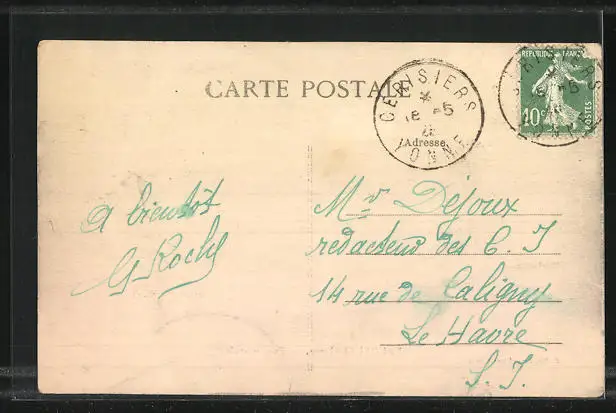 CARTE POSTALE
CERISIERS
YONNE
Adresse
REPUBLIQUE FRANÇAISE
10c
POSTES
A bientôt
G Roche
Mr Déjoux
redacteur des C. I
14 rue de Caligny
Le Havre
S. I.